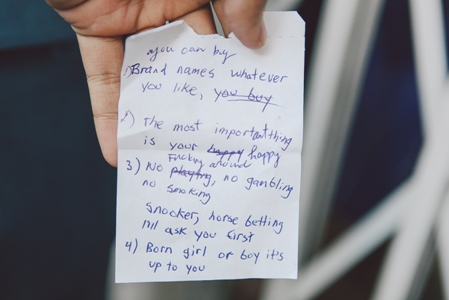 you can buy
1) Brand names whatever
you like, you buy
2) The most important thing
is your happy happy
Fucking around
3) No playing, no gambling
no smoking
Snooker, horse betting
nil ask you first
4) Born girl or boy it's
up to you